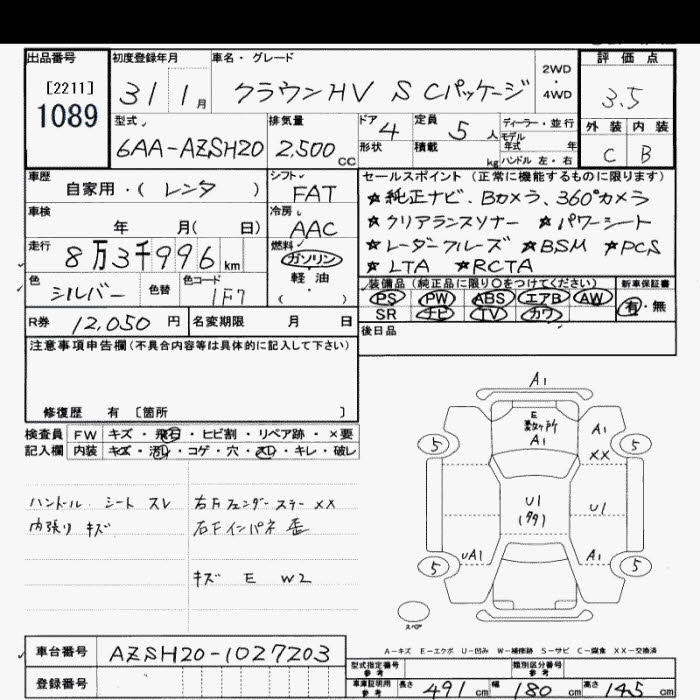 出品番号 初度登録年月 車名・グレード 評価点
[2211] 31年 1月 クラウンHV S Cパッケージ 2WD・4WD 3.5
1089 型式 排気量 ドア 4 定員 5人 ディーラー・並行 外装 内装
6AA-AZSH20 2,500cc 形状 積載 kg モデル年式 年 ハンドル 左・右 C B
車歴 自家用・(レンタ) シフト FAT セールスポイント (正常に機能するものに限ります)
車検 年 月( 日) 冷房 AAC ☆純正ナビ、Bカメラ、360°カメラ
☆クリアランスソナー ☆パワーシート
走行 8万3千996km 燃料 ガソリン ☆レーダークルーズ ☆BSM ☆PCS
軽油 ☆LTA ☆RCTA
色 シルバー 色替 色コード 1F7 ( ) 装備品 (純正品に限り○をつけてください) 新車保証書
PS PW ABS エアB AW 有・無
R券 12,050円 名変期限 月 日 SR ナビ TV カワ
後日品
注意事項申告欄 (不具合内容等は具体的に記入して下さい)
修復歴 有 〔箇所 〕
検査員 FW キズ・飛石・ヒビ割・リペア跡・×要
記入欄 内装 キズ・汚レ・コゲ・穴・スレ・キレ・破レ
ハンドル、シート スレ 右Fフェンダー ステー XX
内張り キズ 右Fインパネ 歪
キズ E W2
A1
E
数ヶ所
A1
A1
XX
5 5
U1
(タタ)
U1
UA1 A1
5 5
スペア
A-キズ E-エクボ U-凹み W-補修跡 S-サビ C-腐食 XX-交換済
車台番号 AZSH20-1027203
登録番号
型式指定番号 参考 類別区分番号 参考
車庫証明用 参考 長さ 491cm 幅 180cm 高さ 145cm